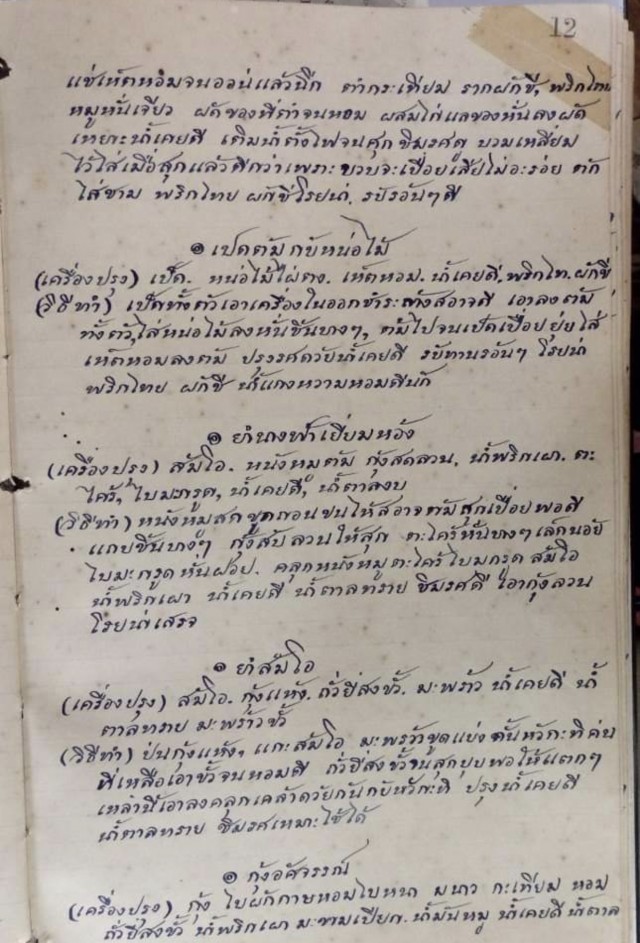 12
แช่เห็ดหอมจนอ่อนแล้วฉีก ตำกระเทียม รากผักชี, พริกไทย
หมูหั่นเจียว ผัดของที่ตำจนหอม ผสมไก่แลของหั่นลงผัด
เหยาะน้ำเคยดี เติมน้ำตั้งไฟจนศุก ชิมรศดู บวมเหลี่ยม
ไว้ใส่เมื่อสุกแล้วดีกว่าเพราะบวบจะเปื่อยเสียไม่อะร่อย ตัก
ใส่ชาม พริกไทย ผักชีโรยน่า, รับร้อนๆดี
๏ เปดต้มกับหน่อไม้
(เครื่องปรุง) เป็ด. หน่อไม้ไผ่ตง. เห็ดหอม. น้ำเคยดี, พริกไท. ผักชี
(วิธีทำ) เป็ดทั้งตัวเอาเครื่องในออกชำระล้างสอาจดี เอาลงต้ม
ทั้งตัว, ใส่หน่อไม้ลงหั่นชิ้นบางๆ, ต้มไปจนเป็ดเปื่อยยุ่ยใส่
เห็ดหอมลงต้ม ปรุงรศด้วยน้ำเคยดี รับทานร้อนๆ โรยน่า
พริกไทย ผักชี น้ำแกงหวานหอมดีนัก
๏ ยำนางฟ้าเยี่ยมหวัง
(เครื่องปรุง) ส้มโอ. หนังหมูต้ม กุ้งสดลวน, น้ำพริกเผา. ตะ
ไคร้, ใบมะกรูด, น้ำเคยดี, น้ำตาลงบ
(วิธีทำ) หนังหมูสดขูดถอนขนให้สอาจต้มสุกเปื่อยพอดี
แถยชิ้นบางๆ กุ้งสับลวนให้สุก ตะไคร้หั่นบางๆเล็กน้อย
ใบมะกรูดหั่นฝอย. คลุกหนังหมูตะไคร้ใบมกรูด ส้มโอ
น้ำพริกเผา น้ำเคยดี น้ำตาลทราย ชิมรศดี เอากุ้งลวน
โรยน่าเสรจ
๏ ยำส้มโอ
(เครื่องปรุง) ส้มโอ. กุ้งแห้ง. ถั่วยี่สงขั้ว. มะพร้าว น้ำเคยดี น้ำ
ตาลทราย มะพร้าวขั้ว
(วิธีทำ) ป่นกุ้งแห้ง, แกะส้มโอ มะพร้าวขูดแบ่งคั้นหัวกะทิค่น
ที่เหลือเอาขั้วจนหอมดี ถั่วยี่สงขั้วจนสุกบุบพอให้แตกๆ
เหล่านี้เอาลงคลุกเคล้าด้วยกันกับหัวกะทิ ปรุงน้ำเคยดี
น้ำตาลทราย ชิมรศเหมาะใช้ได้
๏ กุ้งอัศจรรณ์
(เครื่องปรุง) กุ้ง ใบผักกาษหอมใบหนา มนาว กะเทียม หอม
ถั่วยี่สงขั้ว น้ำพริกเผา มะขามเปียก. น้ำมันหมู น้ำเคยดี น้ำตาล